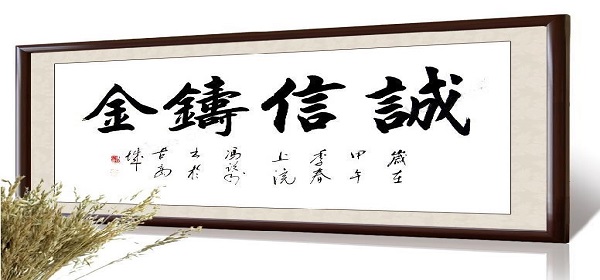 誠信鑄金
歲在
甲午
季春
上浣
馮
書於
古高
城